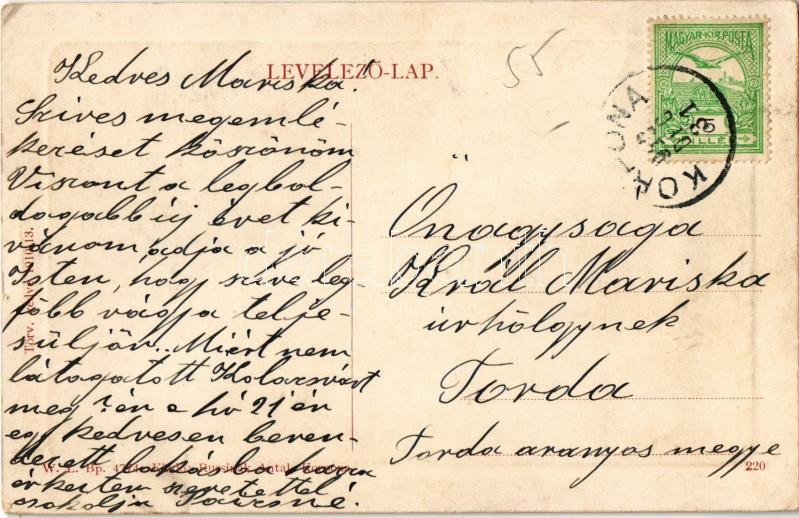 LEVELEZŐ-LAP.
55
MAGYAR·KIR·POSTA
Kedves Mariska!
Szives megemlé-
kezését köszönöm
Viszont a legbol-
dogabb új évet ki-
vánom, adja a jó
Isten, hogy szive leg
főbb vágya telje-
süljön.. Miért nem
látogatott Kolozsvárt
meg? én e hó 21 én
egy kedvesen beren-
dezett lakásba
érkeztem szeretettel
csokolja
KORTONA
Önagysaga
Král Mariska
úrhölgynek
Torda
Torda aranyos megye
W. L. Bp.
220